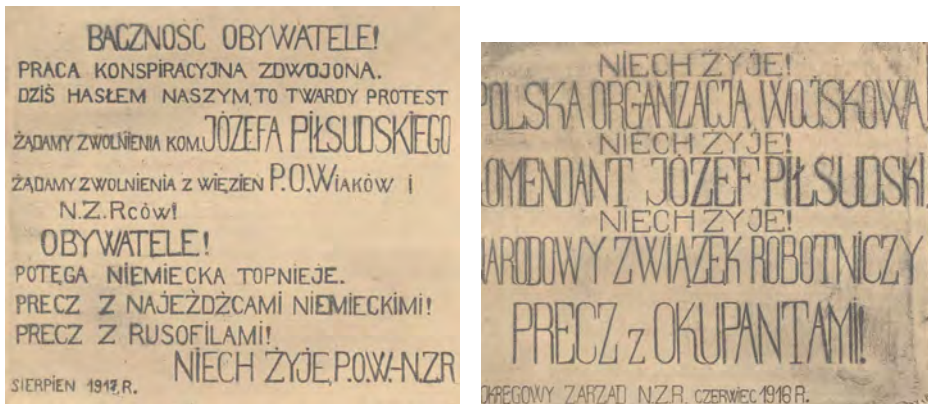 BACZNOSC OBYWATELE!
PRACA KONSPIRACYJNA ZDWOJONA.
DZIŚ HASŁEM NASZYM, TO TWARDY PROTEST
ŻĄDAMY ZWOLNIENIA KOM. JÓZEFA PIŁSUDSKIEGO
ŻĄDAMY ZWOLNIENIA Z WIĘZIEN P.O.Wiaków i
N.Z.Rców!
OBYWATELE!
POTĘGA NIEMIECKA TOPNIEJE.
PRECZ Z NAJEŹDŹCAMI NIEMIECKIMI!
PRECZ Z RUSOFILAMI!
NIECH ŻYJE, P.O.W.-N.Z.R
SIERPIEN 1917, R.
NIECH ŻYJE!
POLSKA ORGANZACJA WOJSKOWA
NIECH ŻYJE!
OMENDANT JÓZEF PIŁSUDSKI,
NIECH ŻYJE!
NARODOWY ZWIĄZEK ROBOTNICZY
PRECZ z OKUPANTAMI!
OKRĘGOWY ZARZĄD N.Z.R. CZERWIEC 1918 R.